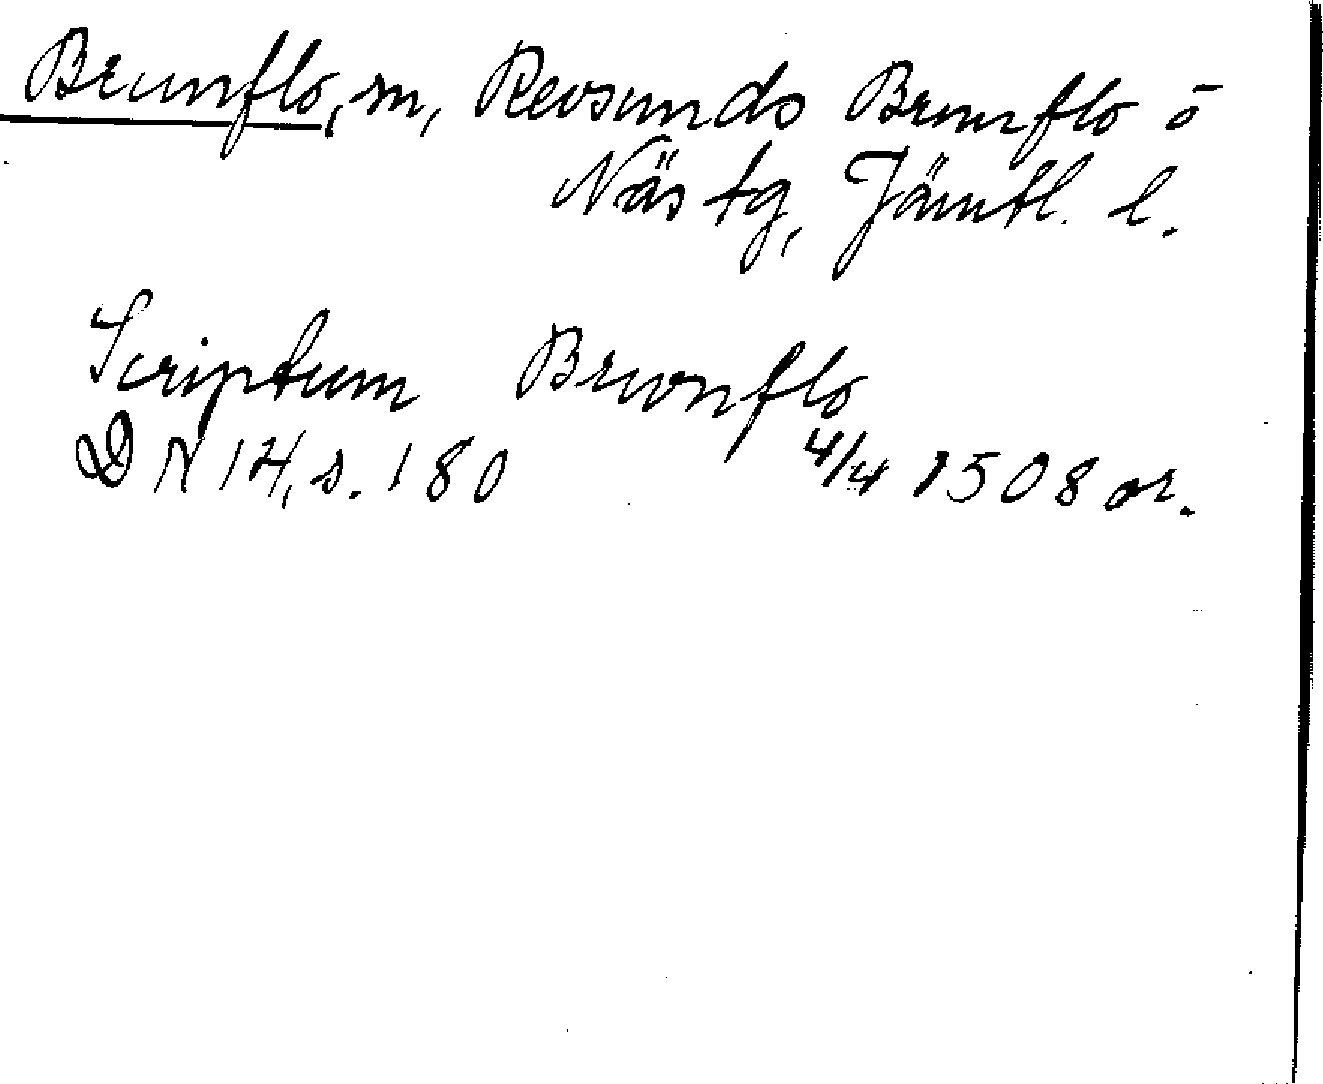 Brunflo, sn, Revsunds Brunflo o
Näs tg, Jämtl. l.
Scriptum Brwnflo
DN 14, s. 180 4/4 1508 or.